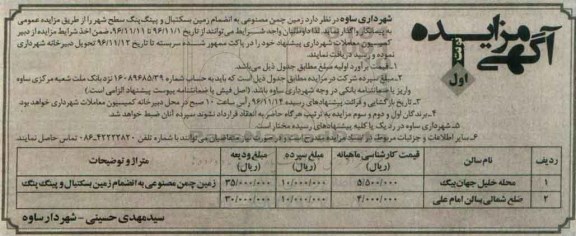 آگهی مزایده
نوبت اول
شهرداری ساوه در نظر دارد زمین چمن مصنوعی به انضمام زمین بسکتبال و پینگ پنگ سطح شهر را از طریق مزایده عمومی
به پیمانکار واگذار نماید. لذا داوطلبان واجد شرایط می‌توانند از تاریخ ۹۶/۱۱/۱ تا ۹۶/۱۱/۱۱ ضمن اخذ شرایط مزایده از دبیر
کمیسیون معاملات شهرداری پیشنهاد خود را در پاکت ممهور شده سربسته تا تاریخ ۹۶/۱۱/۱۲ تحویل دبیرخانه شهرداری
نموده و رسید دریافت نمایند.
۱-قیمت برآورد اولیه مبلغ مطابق جدول ذیل می‌باشد.
۲-مبلغ سپرده شرکت در مزایده مطابق جدول ذیل است که باید به حساب شماره ۱۶۰۸۹۶۸۵۳۹ نزد بانک ملت شعبه مرکزی ساوه
واریز یا ضمانتنامه بانکی در وجه شهرداری ساوه باشد. (اصل فیش یا ضمانتنامه پیوست پیشنهاد الزامی است)
۳-تاریخ بازگشایی و قرائت پیشنهادهای رسیده ۹۶/۱۱/۱۴ رأس ساعت ۱۰ صبح در محل دبیرخانه کمیسیون معاملات شهرداری خواهد بود.
۴-برندگان اول و دوم و سوم مزایده به ترتیب هرگاه حاضر به انعقاد قرارداد نشوند سپرده آنان ضبط خواهد شد.
۵-شهرداری ساوه در رد یک یا کلیه پیشنهادهای رسیده مختار است.
۶-سایر اطلاعات و جزئیات مربوط در اسناد مزایده مندرج است و در صورت نیاز متقاضیان می‌توانند با شماره تلفن ۴۲۲۲۳۸۲۰-۰۸۶ تماس حاصل نمایند.
ردیف نام سالن قیمت کارشناسی ماهیانه (ریال) مبلغ سپرده (ریال) مبلغ ودیعه (ریال) متراژ و توضیحات
۱ محله خلیل جهان بیگ ۵/۵۰۰/۰۰۰ ۱۰/۰۰۰/۰۰۰ ۳۵/۰۰۰/۰۰۰ زمین چمن مصنوعی به انضمام زمین بسکتبال و پینگ پنگ
۲ ضلع شمالی سالن امام علی ۴/۰۰۰/۰۰۰ ۱۰/۰۰۰/۰۰۰ ۳۰/۰۰۰/۰۰۰
سیدمهدی حسینی - شهردار ساوه